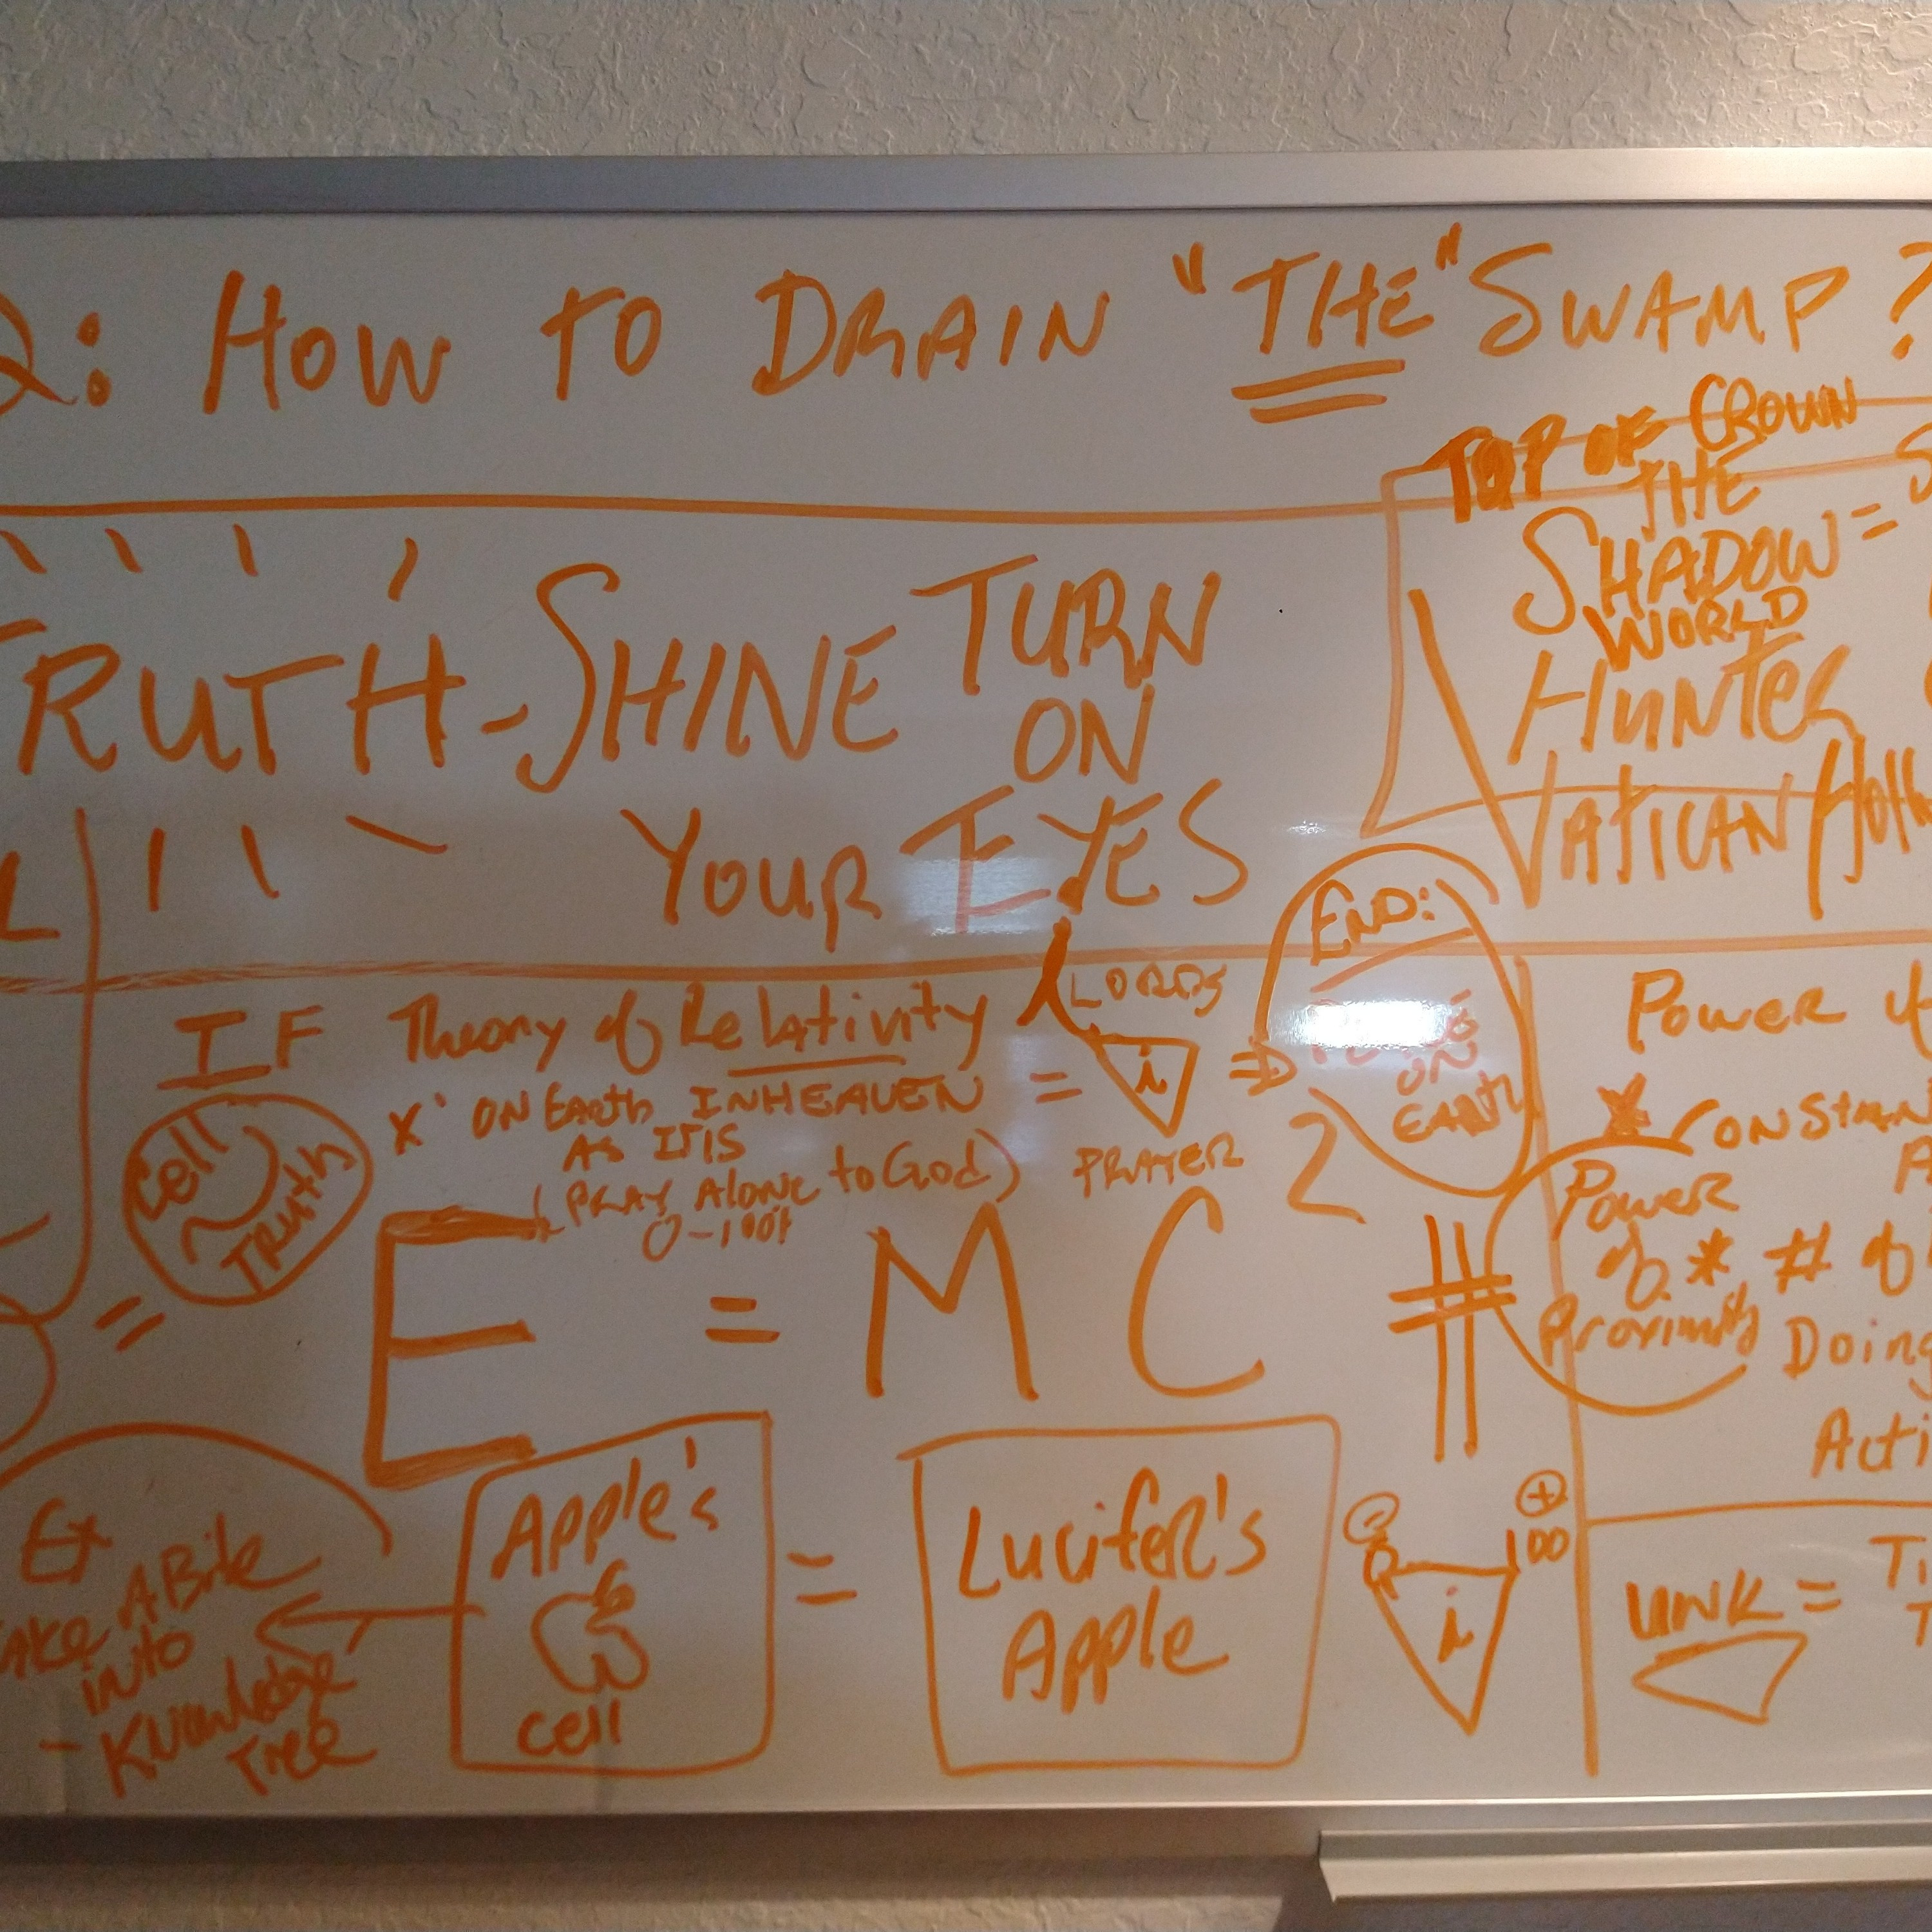 Q: HOW TO DRAIN "THE" SWAMP?
TOP OF CROWN
THE
SHADOW =
WORLD
HUNTER
VATICAN
TRUTH-SHINE TURN
ON
YOUR EYES
L
END:
ON
EARTH
IF Theory of Relativity
LORDS
i
PRAYER
X' ON EARTH IN HEAVEN =
AS IT IS
(PRAY ALONE to God)
0-100%
Cell
TRUTH
=
E = MC 2
Power
* CONSTAN
Power
of * # of
Proximity Doing
Acti
Ex
TAKE A Bite
into
- Knowledge
Tree
Apple's
cell
=
Lucifer's
Apple
0 100
i
UNK =